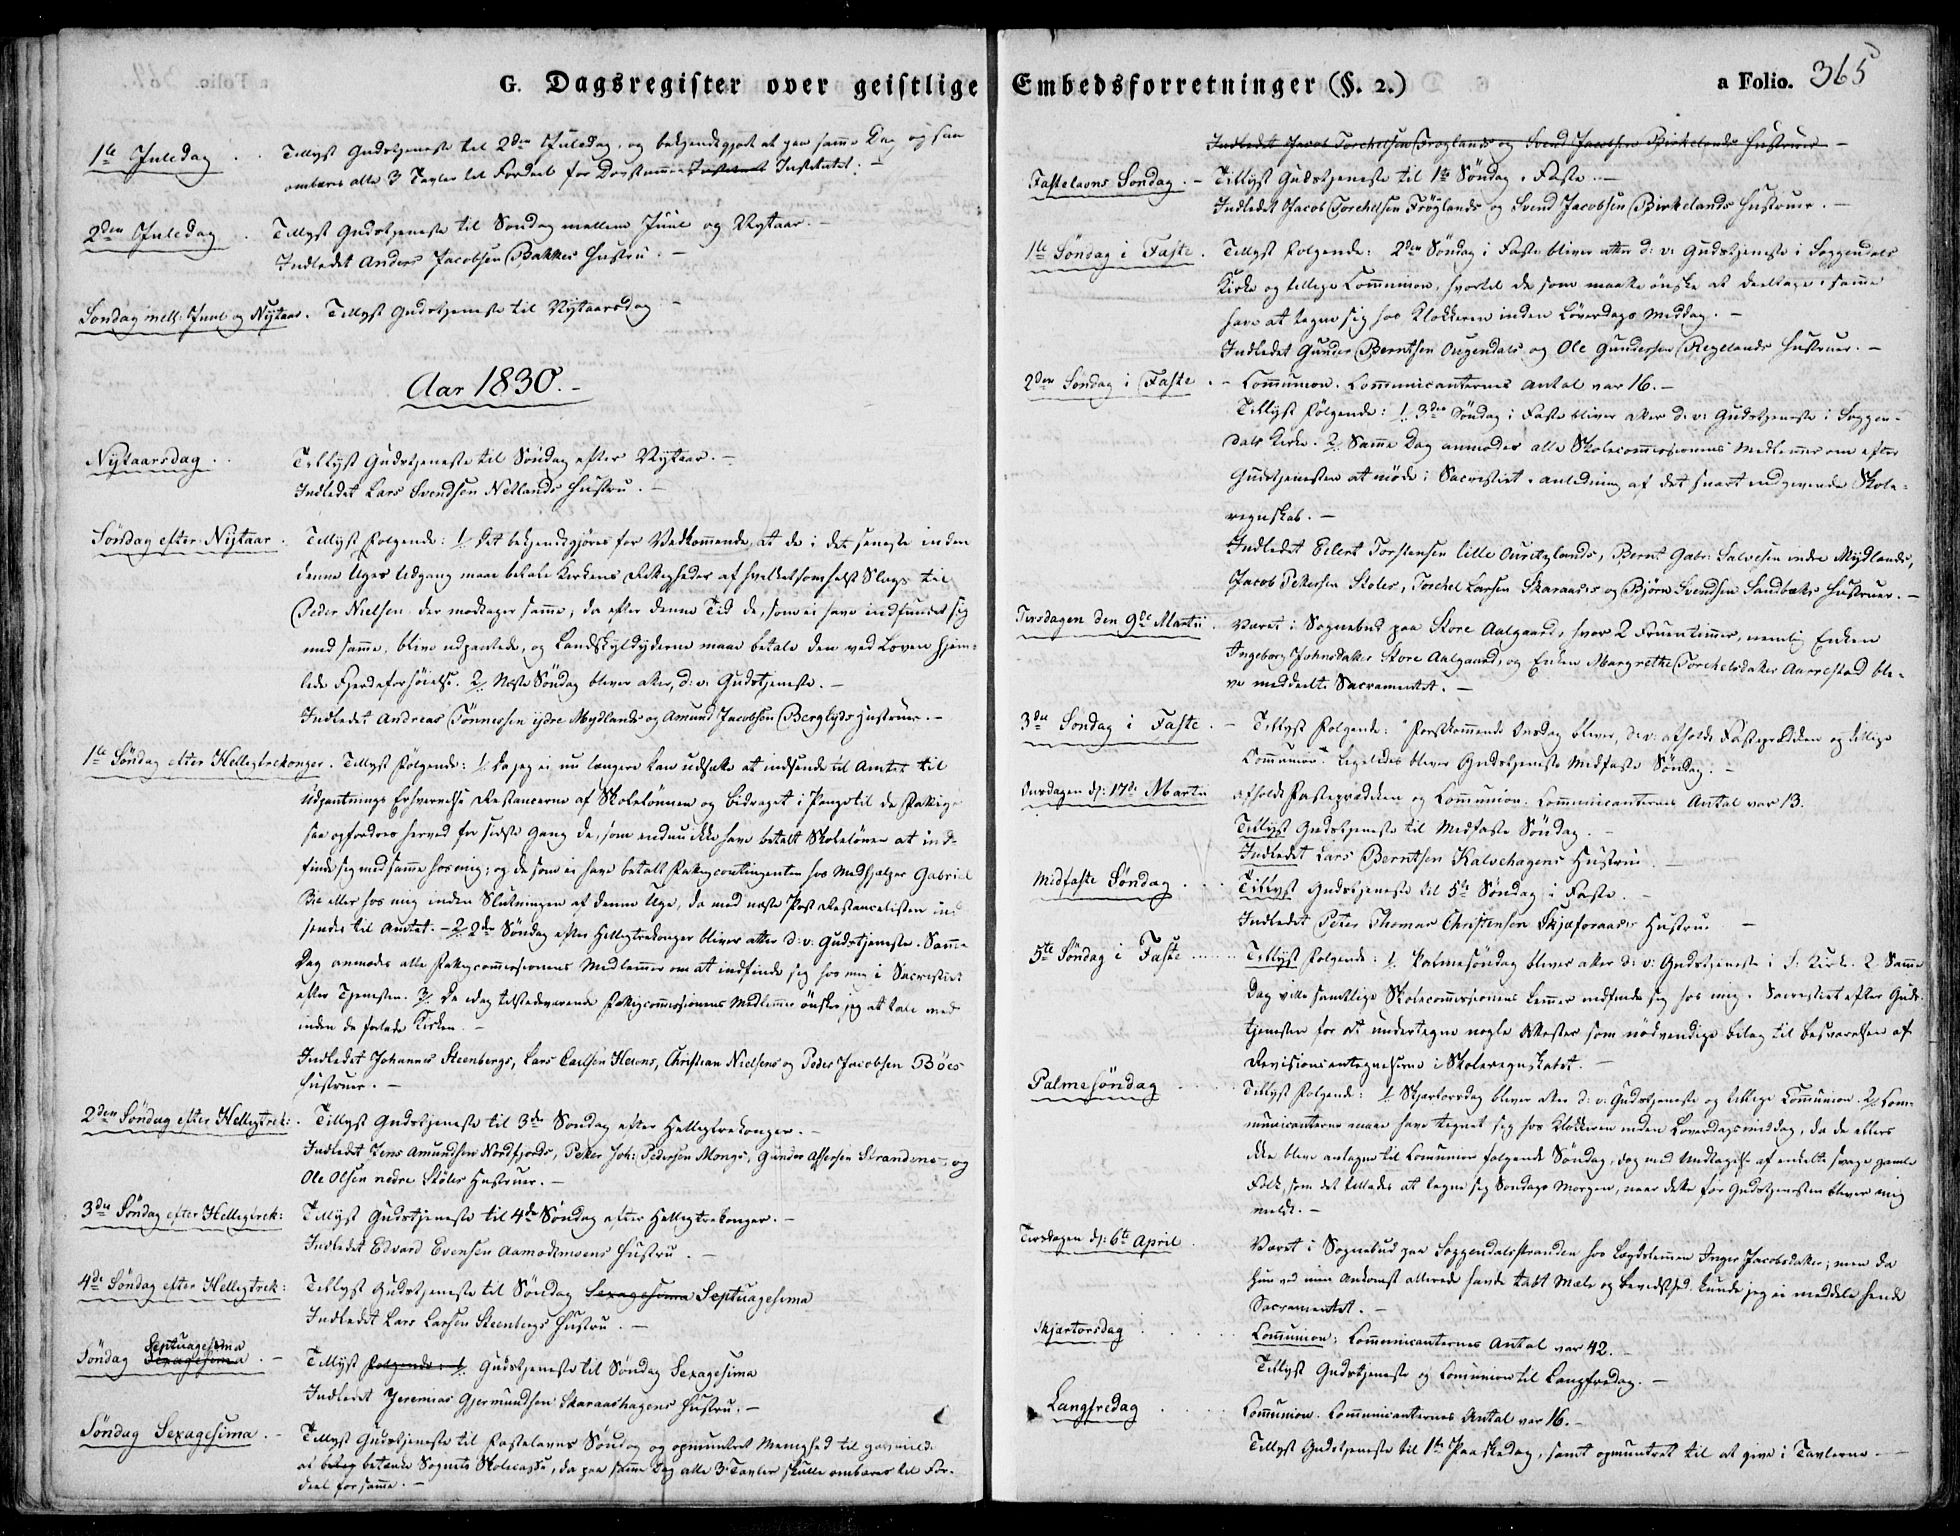 G. Dagsregister over geistlige
1te Juledag . . Tillyst Gudstjeneste til 2den Juledag, og bekjendtgjort at paa samme Dag og saa
ombæres alle 3 Tavler til Fordeel for Døvstumme Institutet. –
2den Juledag . Tillyst Gudstjeneste til Søndag mellem Juul og Nytaar.
Indledet Anders Jacobsen Bakkes Hustru. –
Søndag mell: Juul og Nytaar . Tillyst Gudstjeneste til Nytaarsdag –
Aar 1830. –
Nytaarsdag . . Tillyst Gudstjeneste til Søndag efter Nytaar. –
Indledet Lars Svendsen Netlands Hustru. –
Søndag efter Nytaar . Tillyst Følgende: 1, Det bekjendtgjøres for Vedkommende, at de i det seneste inden
denne Uges Udgang maae betale Kirkens Rettigheder af hvilketsomhelst Slags til
Peder Nielsen, der modtager samme, da efter denne Tid de, som ei have indfundet sig
med samme, blive udpantede, og Landskyldyderne maae betale den ved Loven hjem-
lede Fjerdeforhøielse. 2, Næste Søndag bliver atter, d: v: Gudstjeneste. –
Indledet Andreas Tønnesen ydre Mydlands og Asmund Jacobsen Berglyds Hustruer. –
1te Søndag efter Hellegtrekonger . Tillyst Følgende: 1, Da jeg ei nu længere kan udsætte at indsende til Amtet til
Udpantnings Erhvervelse Restancerne af Skolelønnen og Bidraget i Penge til de Fattige
saa opfordres herved for sidste Gang de, som endnu ikke have betalt Skolelønen at ind-
finde sig med samme hos mig; og de som ei have betalt Fattigcontingenten hos Medhjelper Gabriel
Bie eller hos mig inden Slutningen af denne Uge, da med næste Post Restancelisten ind
sendes til Amtet. – 2, 2den Søndag efter Hellegtrekonger bliver atter d: v: Gudstjeneste. Samme
Dag anmodes alle Fattigcommissionens Medlemmer om at indfinde sig hos mig i Sacrestiet
efter Tjenesten. 3, De idag tilstedeværende Fattigcommissionens Medlemmer ønsker jeg at tale med
inden de forlade Kirken. –
Indledet Johannes Steenbergs, Lars Carlsen Heions, Christian Nielsens og Peder Jacobsen Böes
Hustruer. –
2den Søndag efter Hellegtrek: . Tillyst Gudstjeneste til 3die Søndag efter Hellegtrekonger. –
Indledet Jens Amundsen Nordfjords, Petter Joh: Pedersen Mongs, Gunder Assersen Strandens, og
Ole Olsen nedre Støles Hustruer. –
3die Søndag efter Hellegtrek: Tillyst Gudstjeneste til 4de Søndag efter Hellegtrekonger. –
Indledet Edvard Evensen Aamodtmoens Hustru. –
4de Søndag efter Hellegtrek: Tillyst Gudstjeneste til Søndag Sexagesima Septuagesima
Indledet Lars Larsen Steenbergs Hustru. –
Septuagesima
Søndag Sexagesima . – Tillyst Følgende: 1, Gudstjeneste til Søndag Sexagesima
Indledet Jeremias Gjermundsen Skaraashagens Hustru. –
Søndag Sexagesima . – Tillyst Gudstjeneste til Fastelavns Søndag og opmuntret Menighed til gavmild
at betænke Sognets Skolecasse, da paa samme Dag alle 3 Tavler skulle ombæres til For-
deel for samme. –
Embedsforretninger (§. 2.) a Folio. 365
Indledet Jacob Torchelsen Frøglands og Svend Jacobsen Birkelands Hustruer –
Fastelavns Søndag . – Tillyst Gudstjeneste til 1te Søndag i Faste. –
Indledet Jacob Torchelsen Frøglands og Svend Jacobsen Birkelands Hustruer. –
1te Søndag i Faste . Tillyst Følgende: 2den Søndag i Faste bliver atter d: v: Gudstjeneste i Soggendals
Kirke og tillige Communion, hvortil de som maatte ønske at deeltage i samme
have at tegne sig hos Klokkeren inden Løverdags Middag. –
Indledet Gunder Berntsen Ougendals og Ole Gundersen Regelands Hustruer. –
2den Søndag i Faste . – Communion. Communicanternes Antal var 16. –
Tillyst Følgende: 1, 3die Søndag i Faste bliver atter d: v: Gudstjeneste i Soggen-
dals Kirke. 2, Samme Dag anmodes alle Skolecommissionens Medlemmer om efter
Gudstjenesten at møde i Sacrestiet i anledning af det snart indgivende Skole-
regnskab. –
Indledet Eilert Torstensen lille Ouritzlands, Bernt Gabr: Salvesen indre Mydlands,
Jacob Pettersen Stoles, Torchel Larsen Skaraases og Bjørn Svendsen Sandbæks Hustruer. –
Tirsdagen den 9de Martii . Været i Sognebud paa Store Aalgaard, hvor 2 Fruentimmer, nemlig Enken
Ingeborg Johnsdatter Store Aalgaard, og Enken Margrethe Torchelsdatter Aarrestad ble-
ve meddeelte Sacramentet. –
3die Søndag i Faste . – Tillyst Følgende: Førstkommende Onsdag bliver, d: v: afholdt Fasteprædiken og tillige
Communion. Ligeledes bliver Gudstjeneste Midfaste Søndag. –
Onsdagen d: 17de Martii afholdt Fasteprædiken og Communion. Communicanternes Antal var 13.
Tillyst Gudstjeneste til Midfaste Søndag. –
Indledet Lars Berntsen Kalvehagens Hustru –
Midfaste Søndag . . . Tillyst Gudstjeneste til 5te Søndag i Faste. –
Indledet Peter Thomas Christensen Skjæforaases Hustru –
5te Søndag i Faste . . . . Tillyst Følgende: 1, Palmesøndag bliver atter d: v: Gudstjeneste i S: Kirke. 2, Samme
Dag ville samtlige Skolecommissionens Lemmer indfinde sig hos mig i Sacrestiet efter Guds-
tjenesten for at undertegne nogle Attester som nødvendige bilag til besvarelsen af
Revisionsantegnelserne i Skoleregnskabet. –
Palmesøndag . . . . Tillyst Følgende: 1, Skjærtorsdag bliver atter d: v: Gudstjeneste og tillige Communion. 2, Com-
municanterne maae have tegnet sig hos Klokkeren inden Løverdagsmiddag, da de ellers
ikke bleve antagne til Communion følgende Søndag, dog med Undtagelse af enkelte svage gamle
Folk, som det tillades at tegne sig Søndags Morgen, naar dette før Gudstjenesten bliver mig
meldt. –
Tirsdagen d: 6te April . Været i Sognebud paa Soggendalsstranden hos Lægdslemmen Inger Jacobsdatter; men da
hun ved min Ankomst allerede havde tabt Mæle og Bevidsthed kunde jeg ei meddele hende
Sacramentet. –
Skjærtorsdag . . . . Communion. Communicanternes Antal var 42. –
Tillyst Gudstjeneste og Communion til Langfredag. –
Langfredag . . . . Communion. Communicanternes Antal var 16. –
Tillyst Gudstjeneste til 1te Paaskedag, samt opmuntret til at give i Tavlerne. –